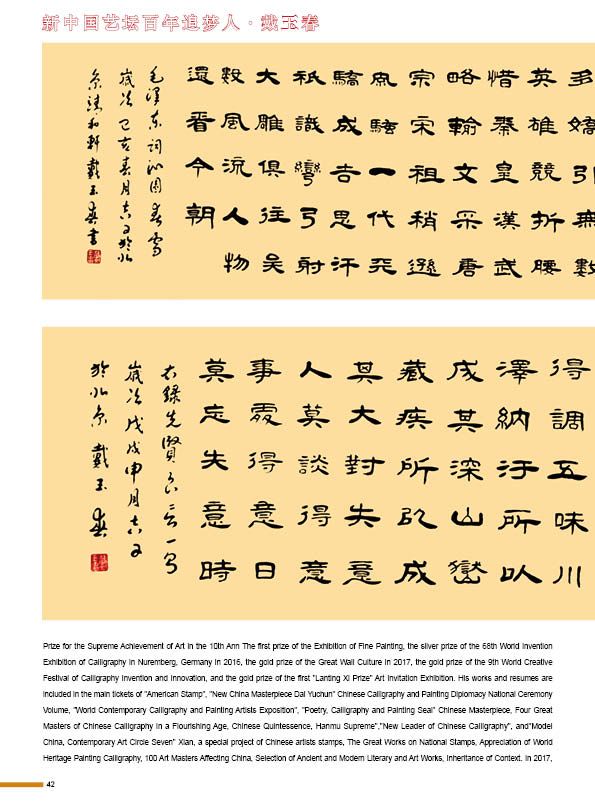 新中国艺坛百年追梦人·戴玉春
多嬌引無數
英雄競折腰
惜秦皇漢武
略輸文采唐
宗宋祖稍遜
風騷一代天
驕成吉思汗
祇識彎弓射
大雕俱往矣
數風流人物
還看今朝
毛澤東詞沁園春雪
歲次己亥春月吉日於北
京 和軒戴玉春書
得調五味川
澤納汙所以
成其深山嶽
藏疾所以成
其大對失意
人莫談得意
事處得意日
莫忘失意時
右錄先賢
歲次戊戌申月吉日
於北京戴玉春
Prize for the Supreme Achievement of Art in the 10th Ann The first prize of the Exhibition of Fine Painting, the silver prize of the 68th World Invention
Exhibition of Calligraphy in Nuremberg, Germany in 2016, the gold prize of the Great Wall Culture in 2017, the gold prize of the 9th World Creative
Festival of Calligraphy Invention and Innovation, and the gold prize of the first "Lanting Xi Prize" Art Invitation Exhibition. His works and resumes are
included in the main tickets of "American Stamp", "New China Masterpiece Dai Yuchun" Chinese Calligraphy and Painting Diplomacy National Ceremony
Volume, "World Contemporary Calligraphy and Painting Artists Exposition", "Poetry, Calligraphy and Painting Seal" Chinese Masterpiece, Four Great
Masters of Chinese Calligraphy in a Flourishing Age, Chinese Quintessence, Hanmu Supreme","New Leader of Chinese Calligraphy", and"Model
China, Contemporary Art Circle Seven" Xian, a special project of Chinese artists stamps, The Great Works on National Stamps, Appreciation of World
Heritage Painting Calligraphy, 100 Art Masters Affecting China, Selection of Ancient and Modern Literary and Art Works, Inheritance of Context. In 2017,
42